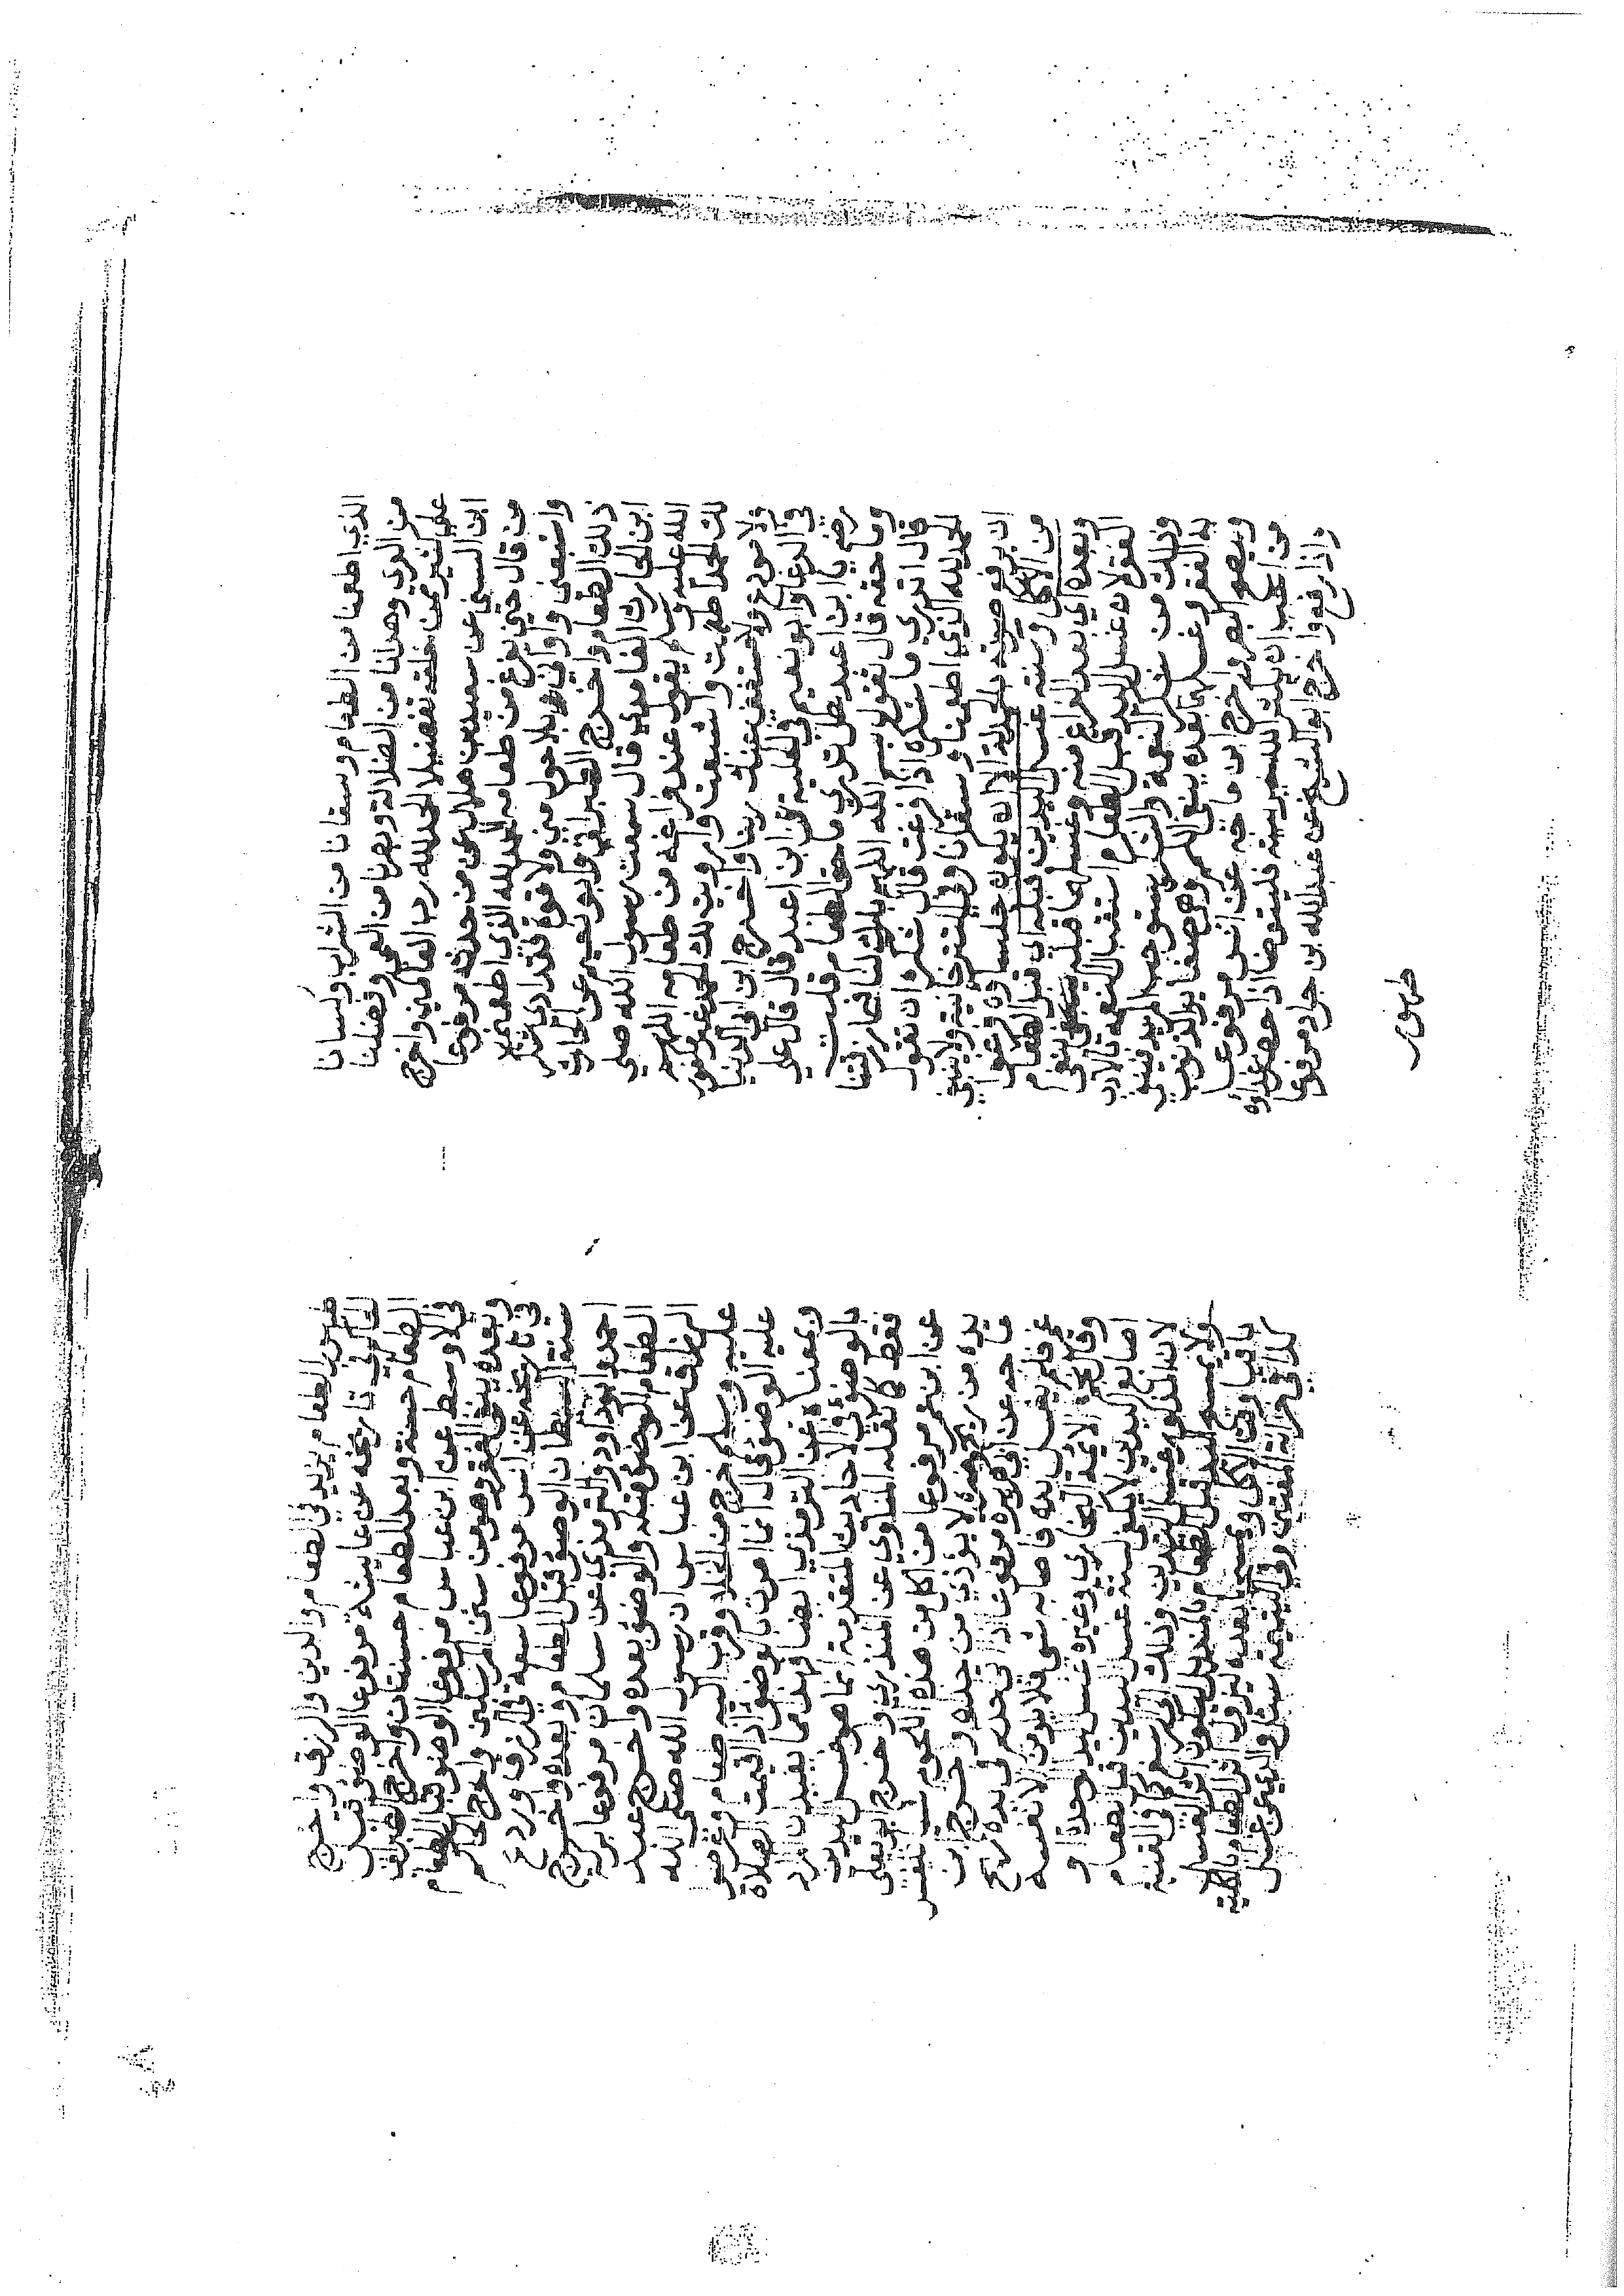 الذي اطعمنا من الطعام وسقانا من الشراب وكسانا
من العري وهدانا من الضلالة وبصرنا من العمى وفضلنا
على كثير ممن خلقه تفضيلا الحمد لله رب العالمين واخرج
ابن السني عن سعيد بن هلال عن من حدثه مرفوعا
من قال حين يفرغ من طعامه الحمد لله الذي اطعمني
واشبعني واواني بلا حول مني ولا قوة فقد ادى شكر
ذلك الطعام واخرج الطبراني وابو نعيم عن الحارث
ابن الحارث الغامدي قال سمعت رسول الله صلى
الله عليه وسلم يقول عند فراغه من طعامه اللهم
لك الحمد اطعمت واشبعت وارويت لك الحمد غير مكفور
ولا مودع ولا مستغنى عنك ربنا واخرج ابن ابي الدنيا
في الدعا وابو نعيم في الحلية عن ابن اعبد قال قال علي
رضي يا ابن اعبد هل تدري ما حق الطعام قلت
وما حقه قال تقول بسم الله اللهم بارك لنا فيما رزقتنا
قال اتدري ما شكره اذا فرغت قال شكره ان تقول
الحمد لله الذي اطعمنا وسقانا وفي التترخانية ولا ينبغي
ان يرفع صوته بالحمدلة الا ان يكون جلساوه فرغوا
من الاكل وسنته غسل اليدين قبله اي قبل الطعام
وبعده اي بعد الفراغ منه وغسلها قبله ينفي
الفقر لان غسل اليد قبل الطعام استقبال النعمة بالادب
وذلك من شكر النعمة والشكر يستوجب المزيد فينفي
به الفقر وغسلها بعده ينفي اللمم وهي صغاير الذنوب
ويصح البصر واخرج ابن ماجه عن انس مرفوعا
من احب ان يكثر الله خير بيته فليتوضا اذا حضر غداوه
واذا رفع واخرج ابو الشيخ عن عبد الله بن جراد مرفوعا
طهور
طهور الطعام يزيد في الطعام والدين والرزق واخرج
الحاكم في تاريخه عن عايشة مرفوعا الوضو قبل
الطعام حسنة وبعد الطعام حسنتان واخرج الطبراني
في الاوسط عن ابن عباس مرفوعا الوضو قبل الطعام
وبعده ينفي الفقر وهو من سنن المرسلين واخرج الحاكم
في تاريخه عن انس مرفوعا سعة في الرزق وردع
سنة الشيطان الوضو قبل الطعام وبعده واخرج
احمد وابو داود والترمذي عن سلمان مرفوعا بركة
الطعام الوضو قبله والوضو بعده واخرج عبد
الرزاق عن ابن عباس ان رسول الله صلى الله
عليه وسلم خرج من الخلا وقرب اليه طعام وعرض
عليه الوضو فقال انما امرت بالوضو اذا اقيمت الصلاة
وبمعناه عن الترمذي ايضا فهذا مما يفيد ان المراد
بالوضو في الاحاديث المتقدمة انما هو غسل اليدين
فقط كما نقله المناوي عن المنذري واخرج ابو يعلى
عن ابن عمر مرفوعا من اكل من هذه اللحوم شيا فليغسل
يده من ريح وضره لا يوذي من حذاه واخرج ابن
ماجه عن ابي هريرة مرفوعا اذا نام احدكم وفي يده ريح
غمر فلم يغسل يده فاصابه شي فلا يلومن الا نفسه
وقال نجم الايمة البخاري وغيره غسل اليد الواحدة او
اصابع اليدين لا يكفي لسنة غسل اليدين قبل الطعام
لان المذكور غسل اليدين وذلك الى الرسغ كذا في القنية
ولا يمسح اليد قبل الطعام بالمنديل ليكون اثر الغسل
باقيا وقت الاكل ويمسحها بعده ليزول اثر الطعام بالكلية
كذا في خزانة المفتين وفي اليتيمة سئل والدي عن غسل